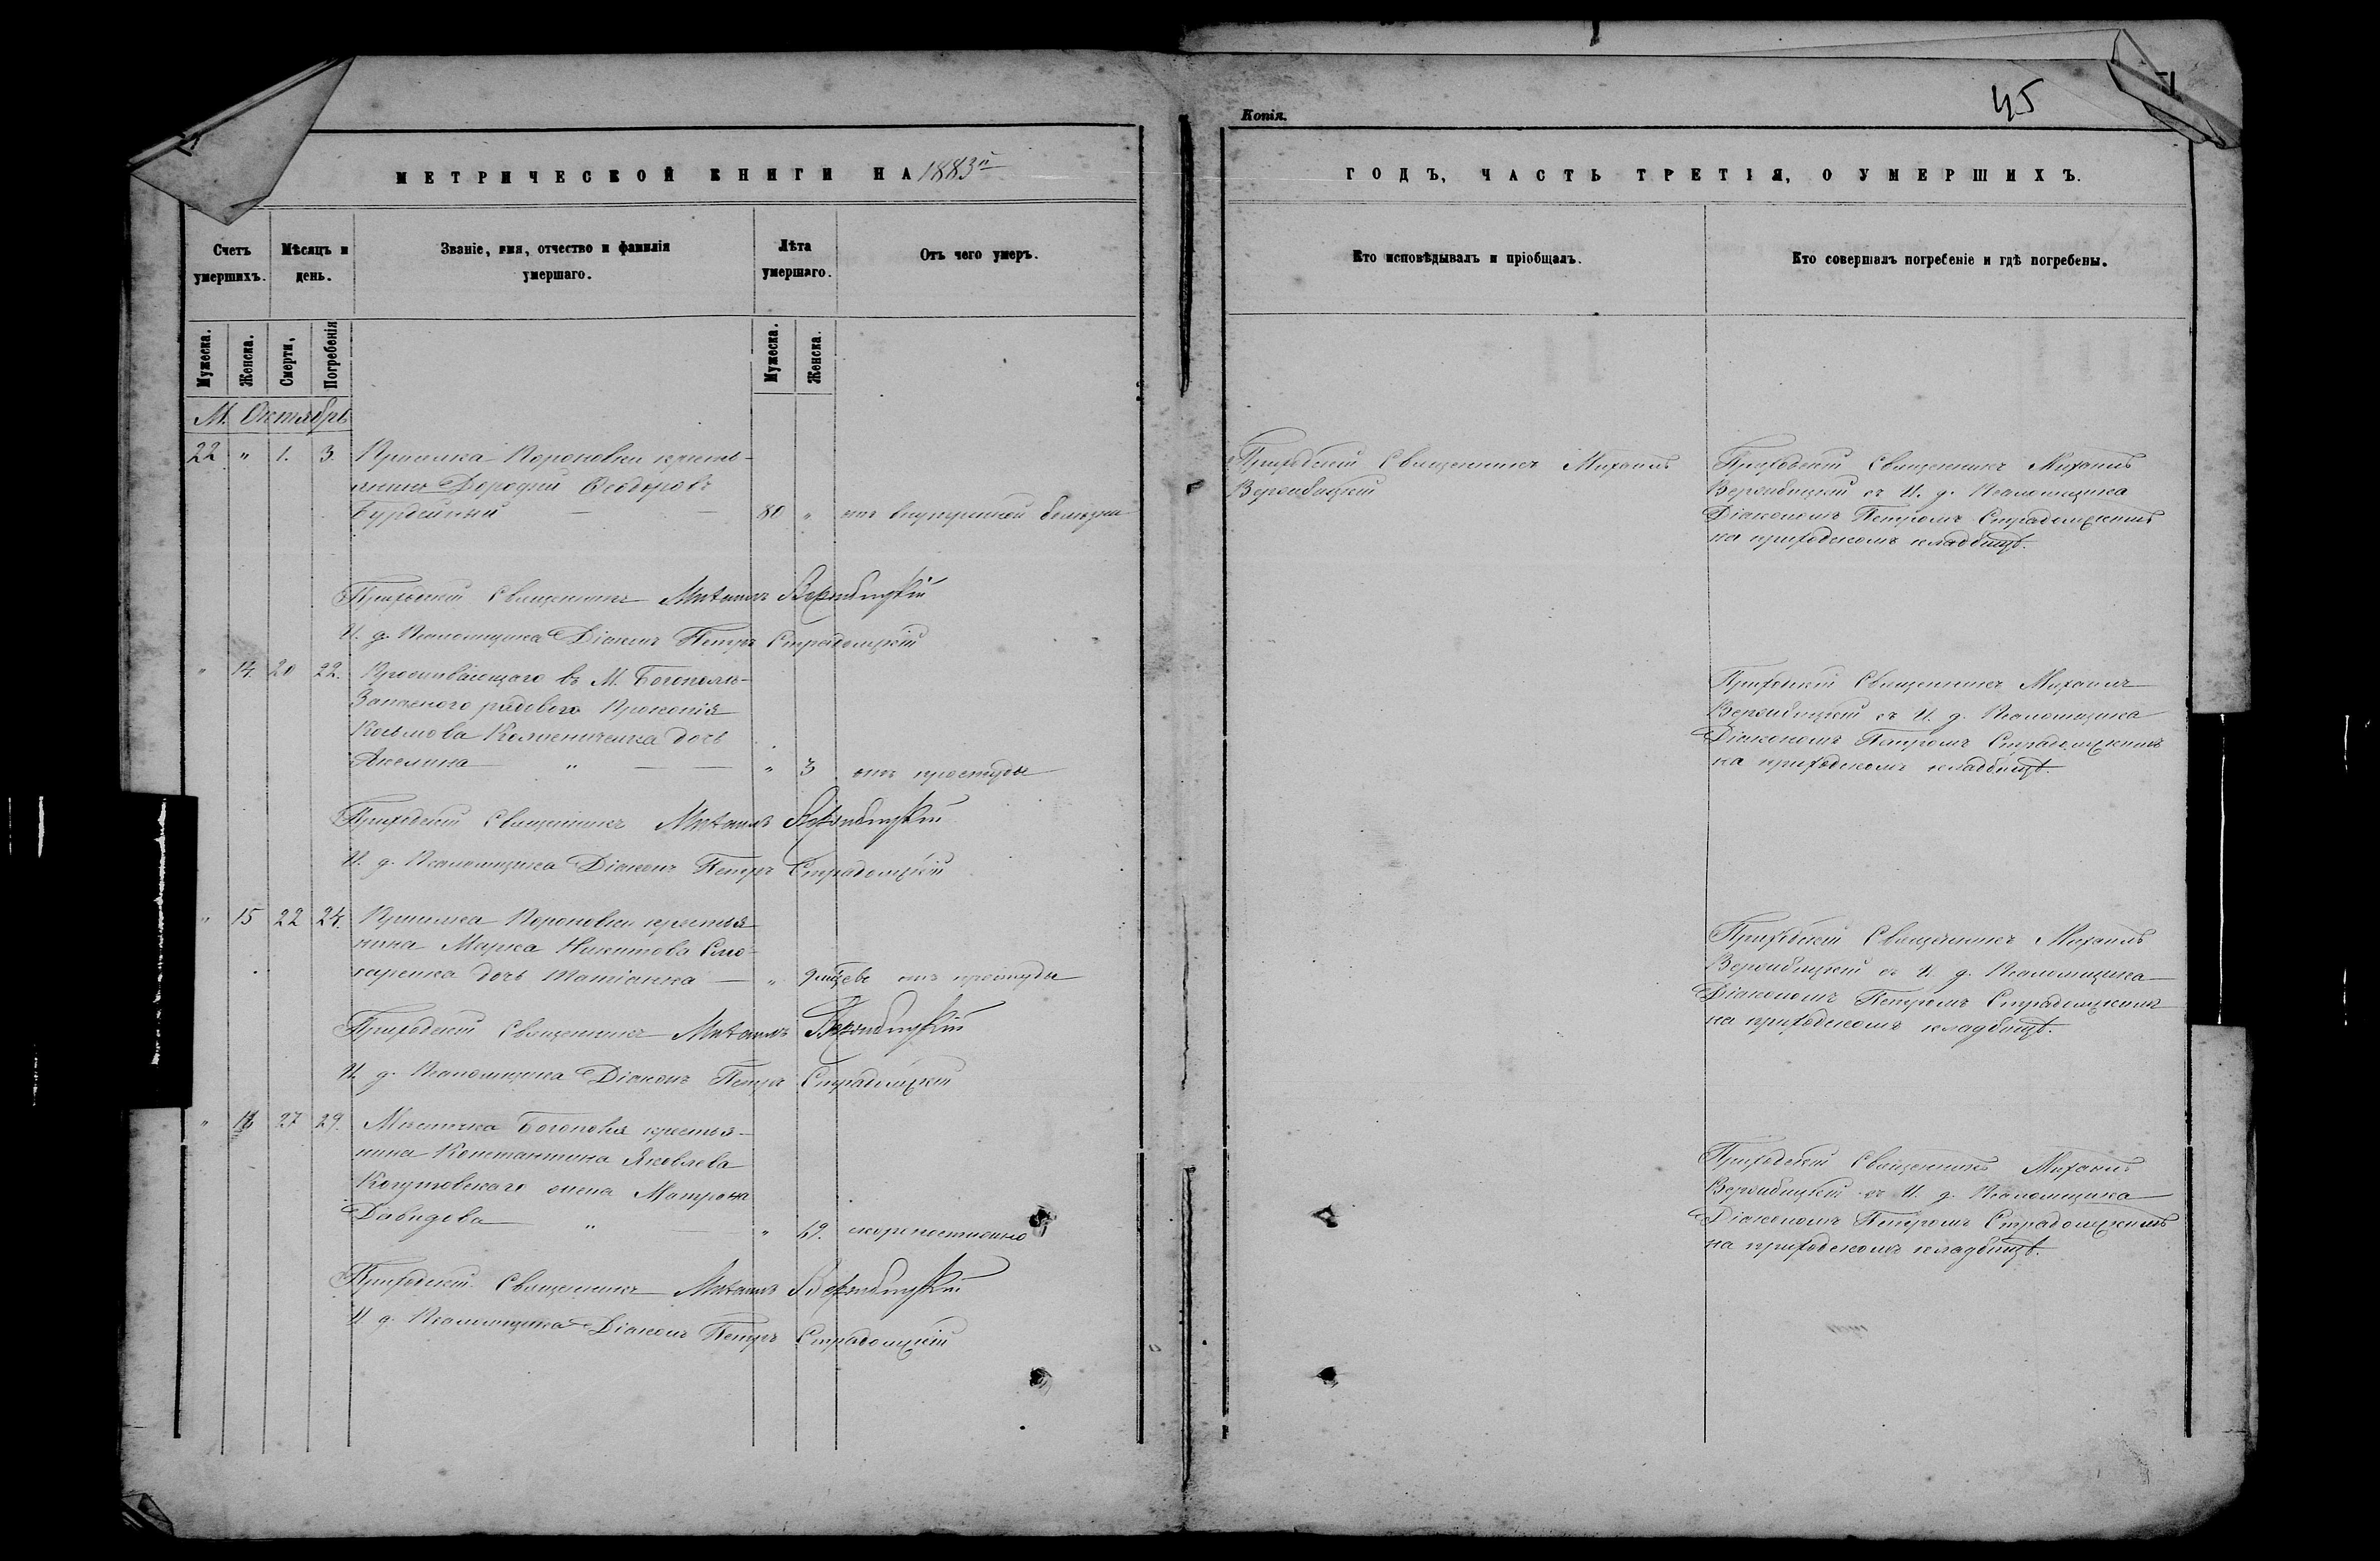 45
Копія.
МЕТРИЧЕСКОЙ КНИГИ НА 1883й
ГОДЪ, ЧАСТЬ ТРЕТІЯ, О УМЕРШИХЪ.
Счетъ умершихъ.
Мѣсяцъ и день.
Званіе, имя, отчество и фамилія умершаго.
Лѣта умершаго.
Отъ чего умеръ.
Кто исповѣдывалъ и пріобщалъ.
Кто совершалъ погребеніе и гдѣ погребены.
Мужеска.
Женска.
Смерти,
Погребенія
Мужеска.
Женска.
М. Октябрь
22 " 1. 3. Короновки кресть-
янинъ Дорофей Ѳеодоровъ
80 " отъ внутренней болѣзни
Приходскій Священникъ Михаилъ
Вержбицкій
Приходскій Священникъ Михаилъ
Вержбицкій съ И. д. Псаломщика
Діакономъ Петромъ Страдомскимъ
на приходскомъ кладбищѣ.
Приходскій Священникъ Михаилъ Вержбицкій
И. д. Псаломщика Діаконъ Петръ Страдомскій
" 14. 20 22. Проживающаго въ М. Богополѣ
Запаснаго рядоваго Прокопія
Косьмова дочь
Акелина " — — " 3 отъ простуды
Приходскій Священникъ Михаилъ
Вержбицкій съ И. д. Псаломщика
Діакономъ Петромъ Страдомскимъ
на приходскомъ кладбищѣ.
Приходскій Священникъ Михаилъ Вержбицкій
И. д. Псаломщика Діаконъ Петръ Страдомскій
" 15 22 24. Короновки крестья-
нина Марка Никитова
дочь Татіанна — " отъ простуды
Приходскій Священникъ Михаилъ
Вержбицкій съ И. д. Псаломщика
Діакономъ Петромъ Страдомскимъ
на приходскомъ кладбищѣ.
Приходскій Священникъ Михаилъ Вержбицкій
И. д. Псаломщика Діаконъ Петръ Страдомскій
" 16 27 29. Мѣстечка Богополя крестья-
нина Константина Яковлева
жена Матрона
Давидова " — " скоропостижно
Приходскій Священникъ Михаилъ
Вержбицкій съ И. д. Псаломщика
Діакономъ Петромъ Страдомскимъ
на приходскомъ кладбищѣ.
Приходскій Священникъ Михаилъ Вержбицкій
И. д. Псаломщика Діаконъ Петръ Страдомскій